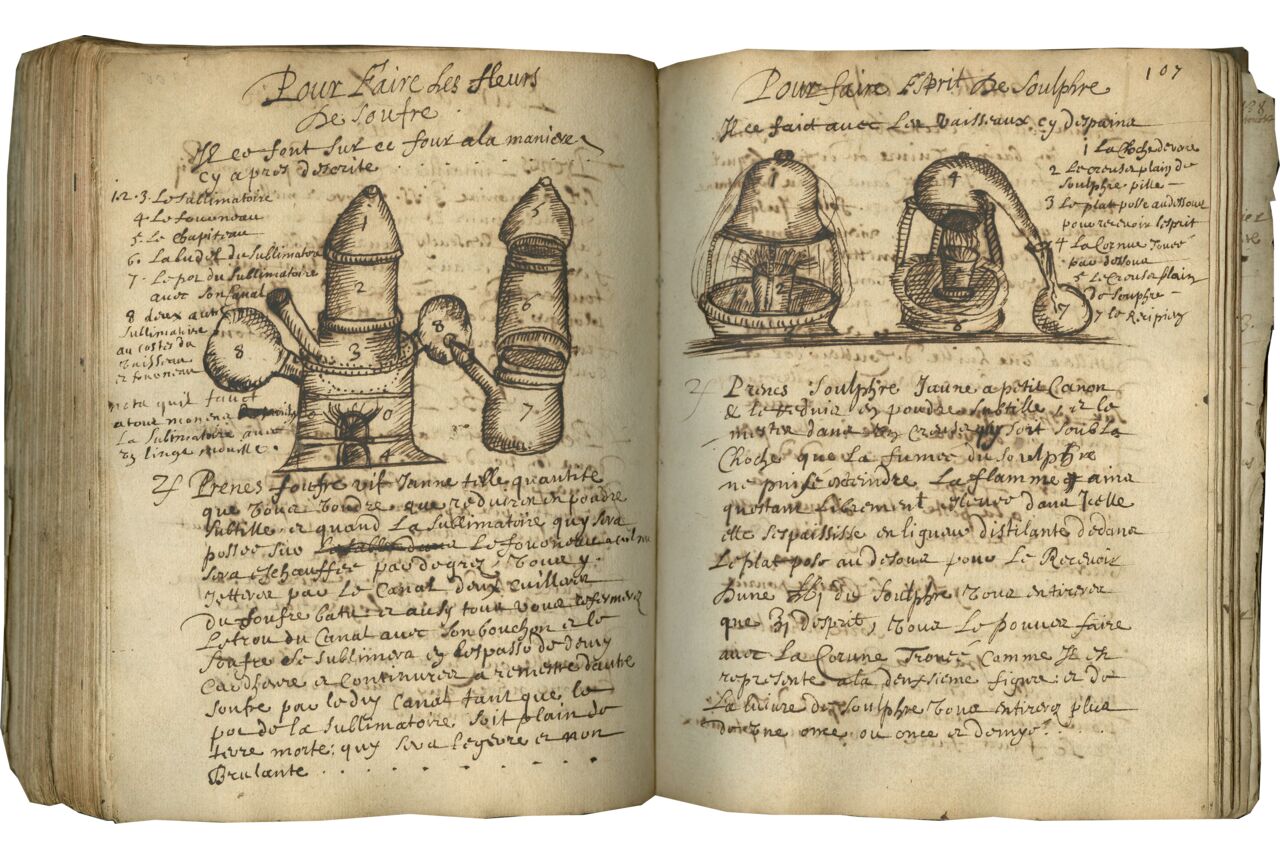 Pour Faire Les fleurs
De soufre
Il ce font sur ce four a la maniere
cy apres descrite
1. 2. 3. Le sublimatoire
4. Le fourneau
5. Le chapiteau
6. La ludel du sublimatoire
7. Le pot du sublimatoire
avec son canal
8 deux aux
sublimatoire
au costes du
vaisseau
et fourneau
nota quil faut
a tout moment
La sublimatoire avec
un linge mouille
1
2
3
8
8
4
5
6
7
Prenes soufre vif Jaune telle quantité
que vous voudres que reduires en poudre
subtille et quand La sublimatoire quy sera
possee sur Le fourneau
sera eschauffée par degrez, vous y
Jetteres par Le Canal deux cuilleres
du soufre batu et ausy tout vous refermerez
Le trou du Canal avec son bouchon et le
soufre se sublimera en lespasse de demy
card heure et Continurez a remettre dautre
soufre par le dit Canal tant que le
pot de la sublimatoire soit plain de
terre morte, quy sera legere et non
Brulante
107
Pour faire Esprit De Soulphre
Il ce faict avec Les vaisseaux cy despains
1 La Cloche de verre
2 Le creuset plain de
soulphre pille
3 Le plat posse au dessous
pour recevoir lesprit
4 La Cornue Trouée
par dessous
5 Le Creuset plain
de souphre
7 le Recipien
1
2
3
4
7
8
Prenes Soulphre Jaune a petit Canon
& le reduit en poudre subtille, et le
mettre dans un Creuset quy soit soubs La
Cloche que La fumee du soulphre
ne puisse esteindre La flamme ains
questant librement eslevee dans Icelle
elle sespaississe en liqueur distilante dedans
Le plat posé au desous pour Le Recevoir
Dune du soulphre vous entireres
que desprit, vous Le pouves faire
avec La Cornue Trouée comme Il est
represente a la deuxsieme figure: et de
La livre du soulphre vous entirerez plus
dune once ou once et demye.